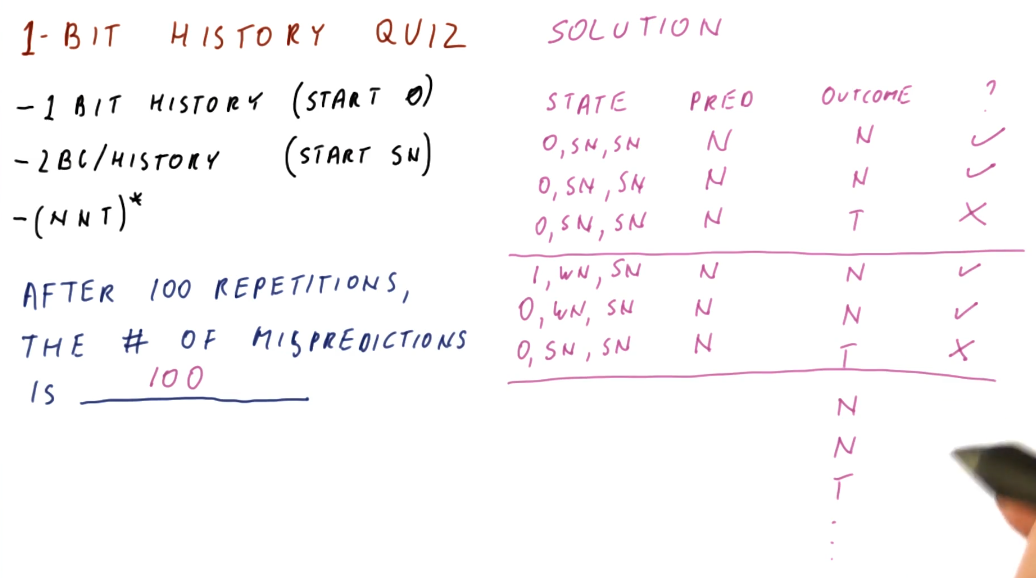 1-BIT HISTORY QUIZ
-1 BIT HISTORY (START 0)
-2BC/HISTORY (START SN)
-(NNT)*
AFTER 100 REPETITIONS,
THE # OF MISPREDICTIONS
IS 100
SOLUTION
STATE PRED OUTCOME ?
0, SN, SN N N ✓
0, SN, SN N N ✓
0, SN, SN N T ✗
1, WN, SN N N ✓
0, WN, SN N N ✓
0, SN, SN N T ✗
N
N
T
.
.
.